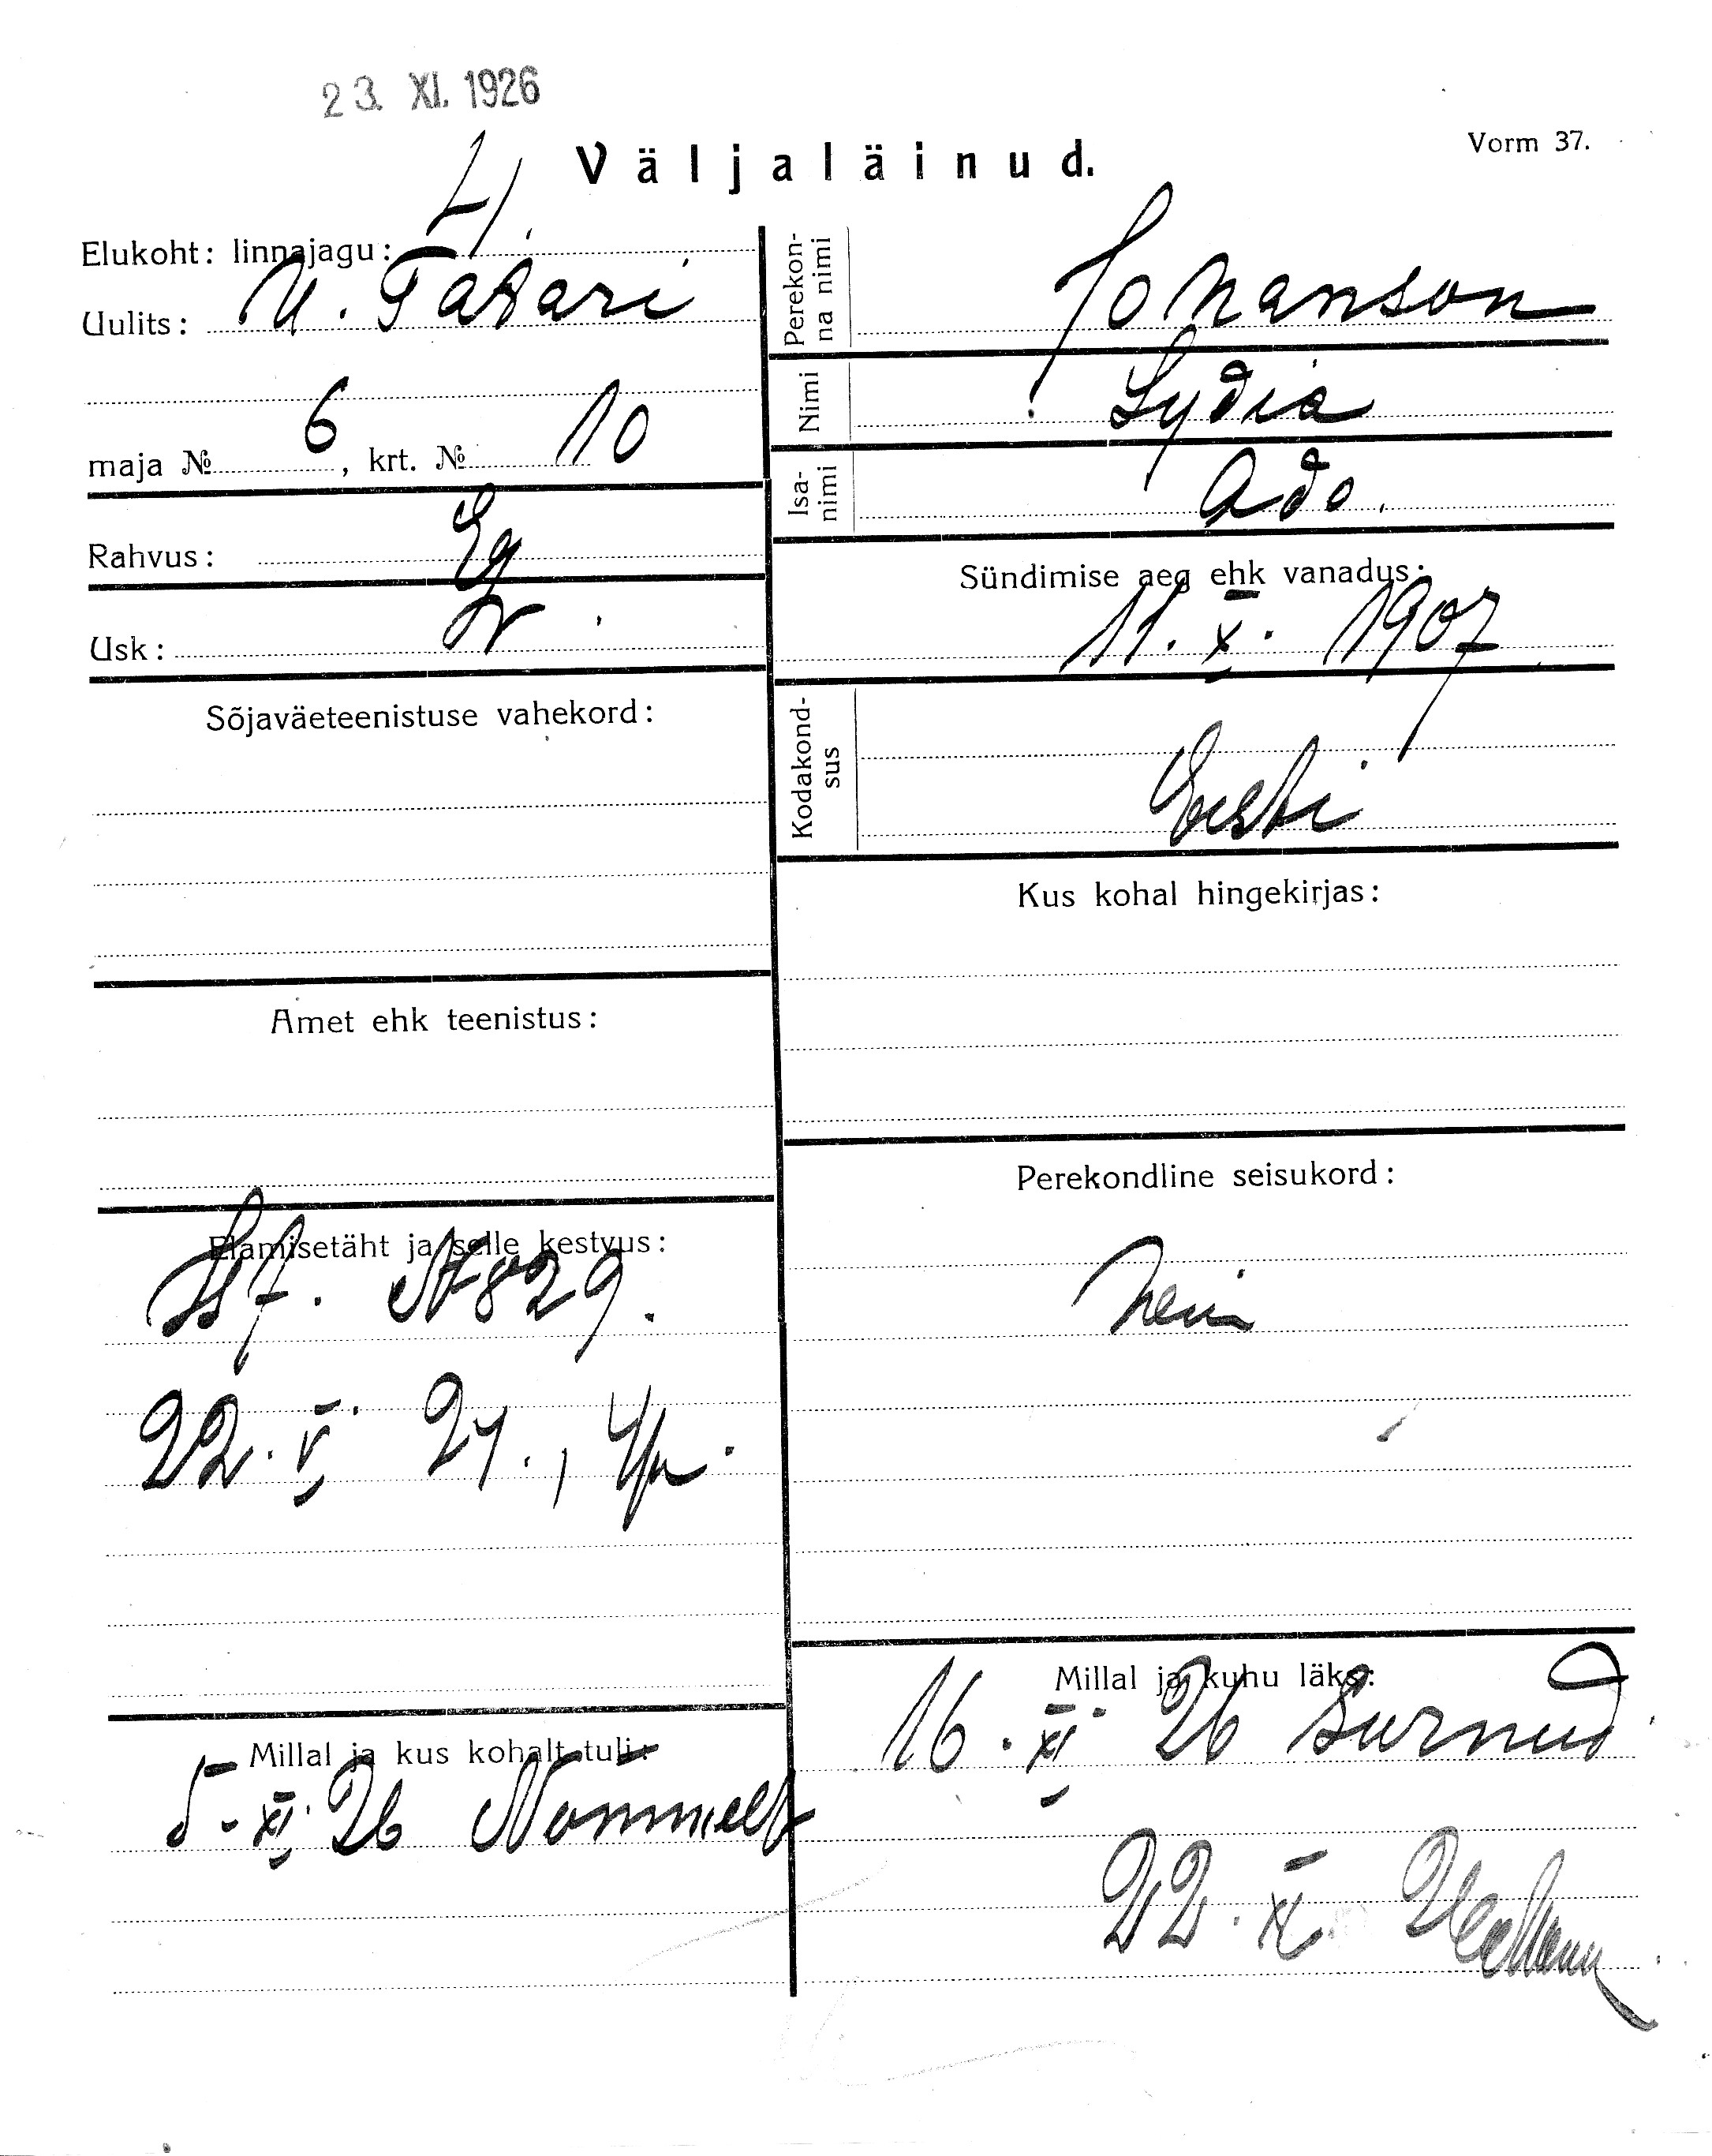 23. XI. 1926
Väljaläinud.
Vorm 37.
Elukoht: linnajagu: 4.
Uulits: U. Tatari
maja № 6, krt. № 10
Rahvus:
Usk:
Sõjaväeteenistuse vahekord:
Amet ehk teenistus:
Elamisetäht ja selle kestvus:
№ 829.
22. V. 24.,
Millal ja kus kohalt tuli:
5. XI. 26 Nõmmelt
Perekonna nimi Johanson
Nimi Lydia
Isanimi Ado.
Sündimise aeg ehk vanadus:
11. X. 1907
Kodakondsus
Eesti
Kus kohal hingekirjas:
Perekondline seisukord:
Millal ja kuhu läks:
16. XI. 26 Surnud
22. XI.